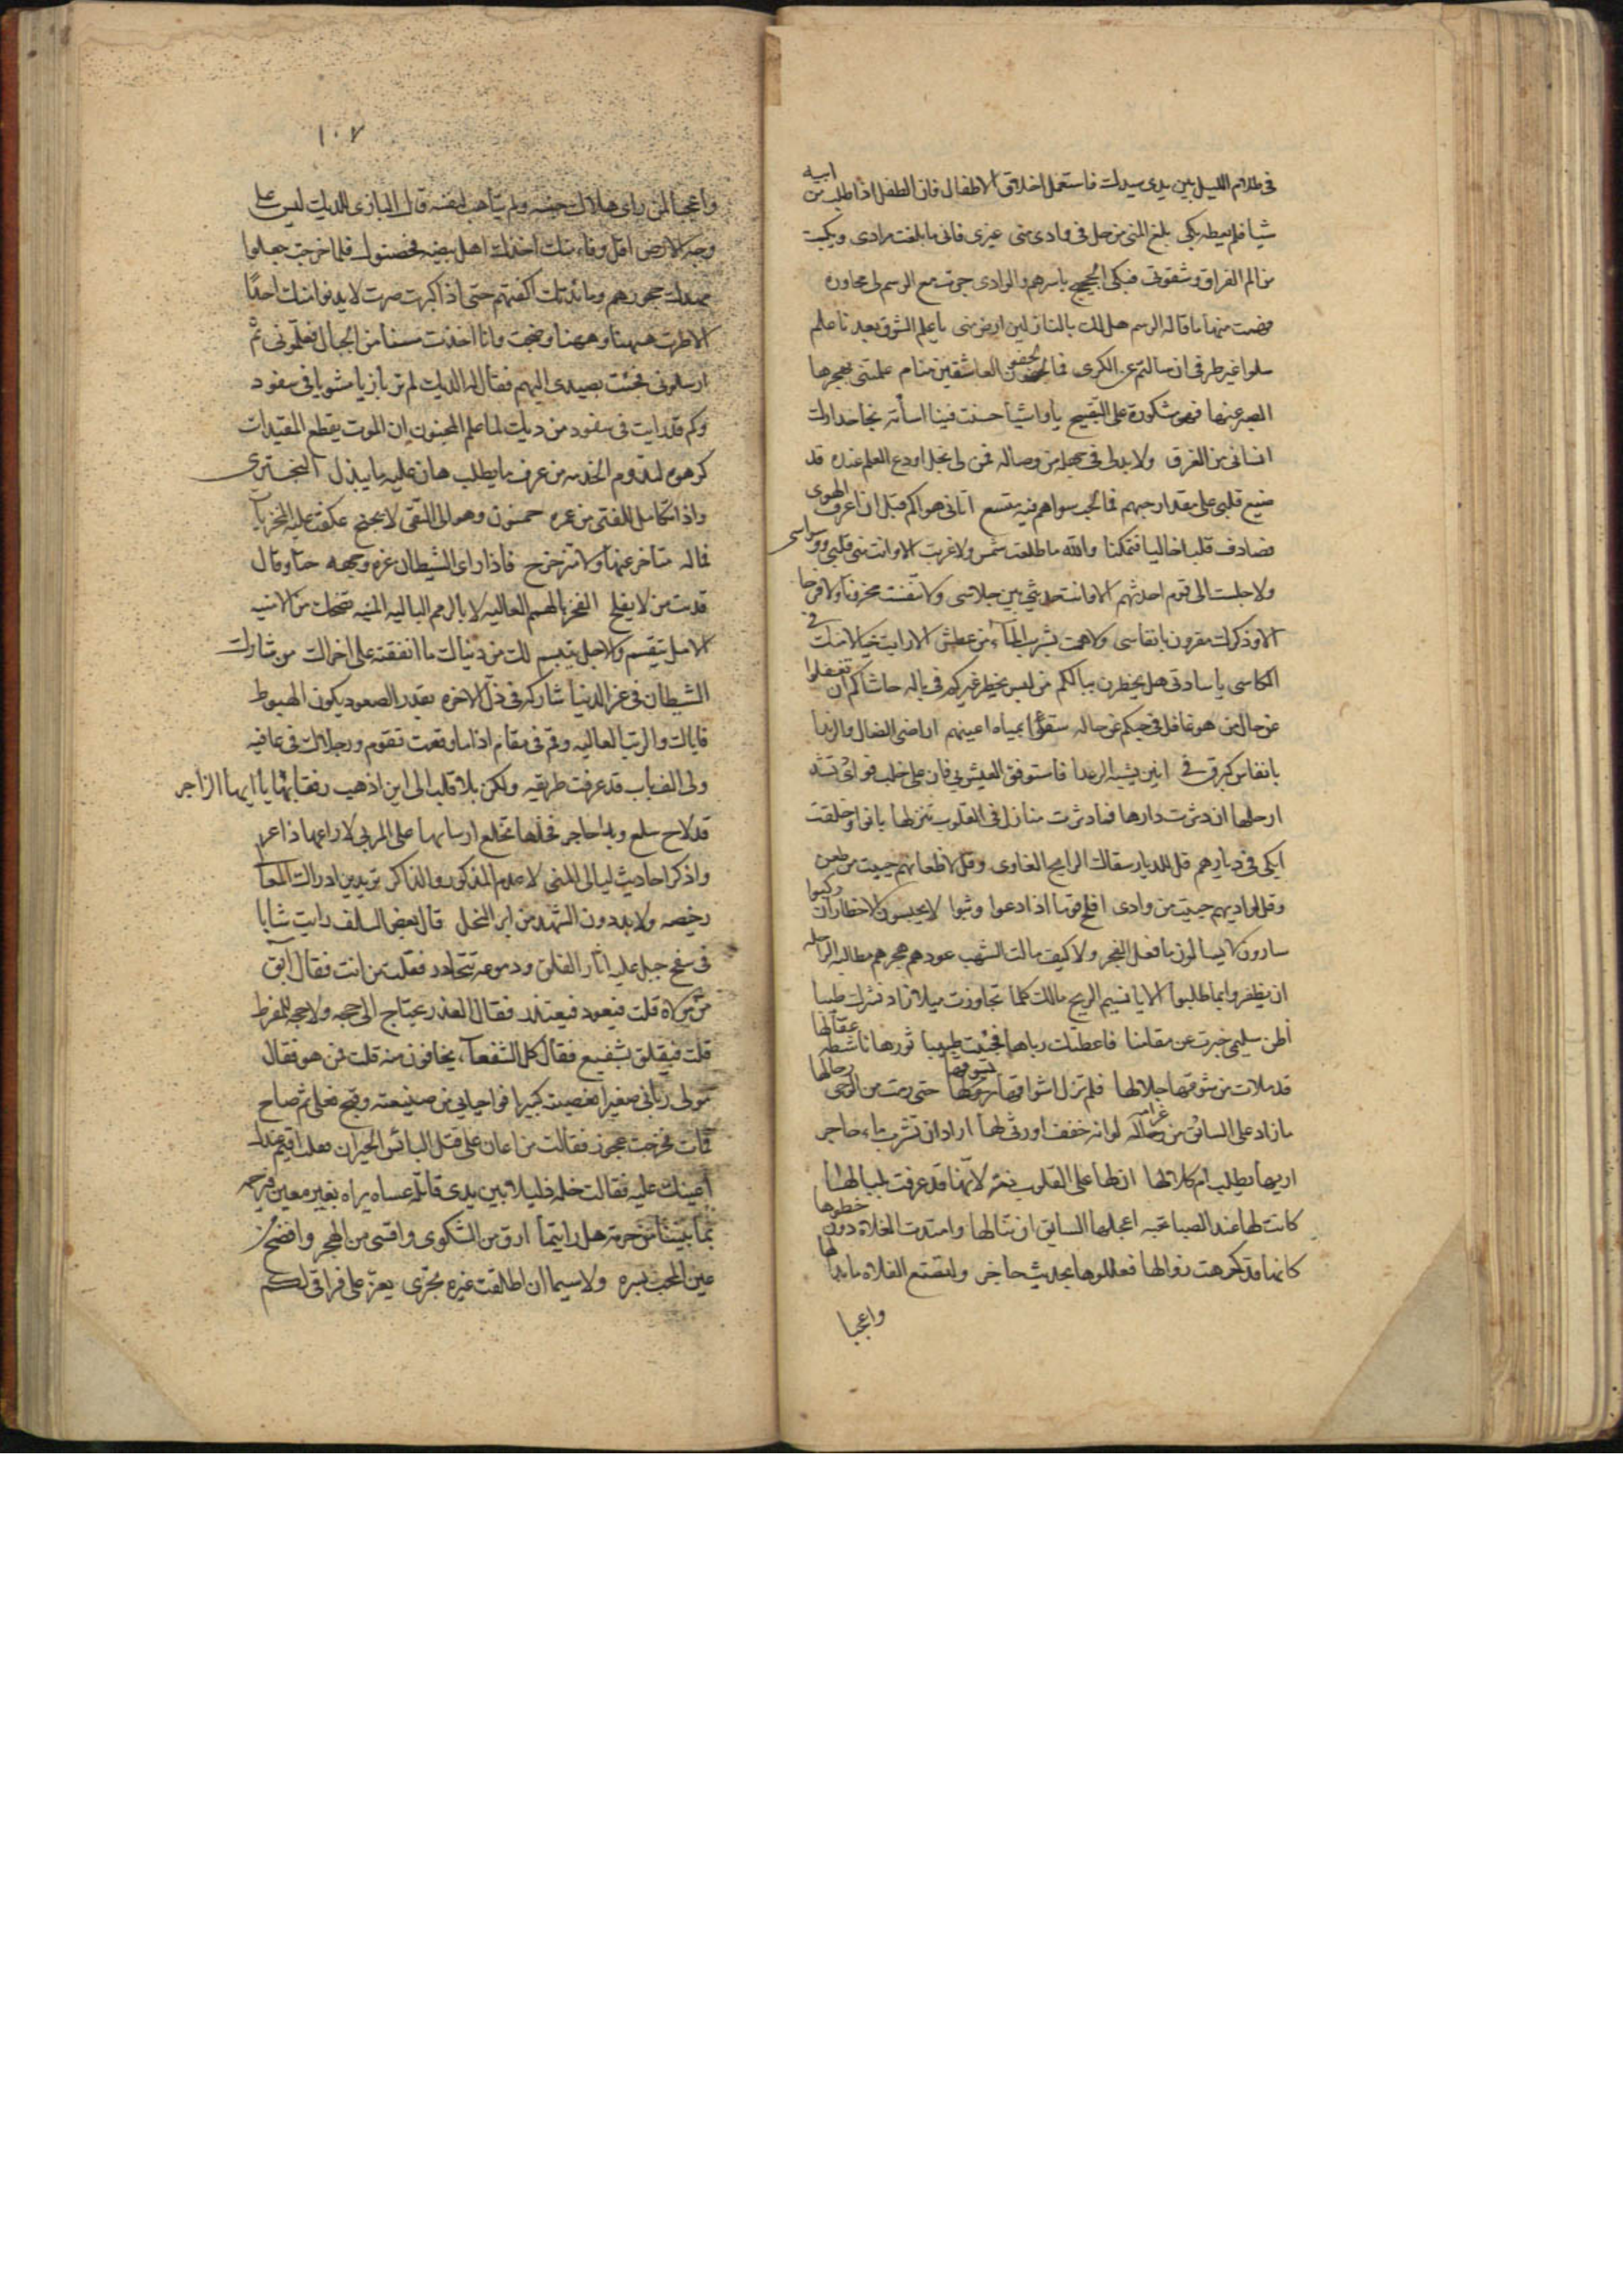 في ظلام الليل بين يدى سيدك فاستعمل اخلاق الاطفال فان الطفل اذا طلب من ابيه
شيا فلم يعطه بكى بلغ المنى من حل في وادى منى غيرى فانى ما بلغت مرادى وبكيت
من الم الفراق وشقوتى فبكى الحجيج باسرهم والوادى جرت مع الرسم لى محاوره
فهمت منها ما قاله الرسم هل لك بالنازلين ارض منى يا علم الشوق بعدنا علم
سلوا غير طرفى ان سالتم عن الكرى فما لجفون العاشقين منام علمتنى بهجرها
الصبر عنها فهى مشكورة على التقبيح يا واشيا حسنت فينا اسأته نجا حذارك
انسانى من الغرق ولا بد لى فى جهلة من وصاله فمن لى بخل اودع الحلم عنده قد
ضيع قلبى على مقدار حبهم فما لحب سواهم فيه متسع اتانى هواكم قبل ان اعرف الهوى
فصادف قلبا خاليا فتمكنا والله ما طلعت شمس ولا غربت الا وانت منى قلبى ووسواسى
ولا جلست الى قوم احدثهم الا وانت حديثى بين جلاسى ولا تنفست محزونا ولا فرحا
الا وذكرك مقرون بانفاسى ولا هممت بشرب الماء من عطش الا رايت خيالا منك فى
الكاسى يا سادتى هل يخطرن ببالكم من ليس يخطر غيركم فى باله حاشاكم ان تغفلوا
عن حال من هو غافل فى حبكم عن حاله سقوا بمياه اعينهم اراضى الضال والرندا
بانفاس كبرق فى انين يشبه الرعدا
ارحلها ان دثرت دارها فما دثرت منازل فى القلوب تنزلها
ابكى فى ديارهم قل للديار سقاك الرايح الغاوى وقل لاظعانهم حييت من ظعن
وقل لواديهم حييت من وادى افلح قوم اذا دعوا وثبوا لا يحبسون الاخطار ان ركبوا
سارون لا يسالون ما فعل الفجر ولا كيف مالت الشهب عودهم هجرهم مطالبة الراحله
ان يظفروا بما طلبوا الا يا نسيم الريح مالك كلما تجاوزت ميلا زاد نشرك طيبا
اظن سليمى خبرت عن مقامنا فاعطتك رياها فجئت طبيبا ثورها ناشطه عقالها
قد ملات من شوقها جلالها فلم تزل اشواقها تسوقها حتى رمت من الوجى رحالها
ما زاد على السائق من غرامه لو انه خفف او رثى لها اراد ان تشرب ماء حاجر
اريها تطلب ام كلا لها ان لها على القلوب ذمه لانها قد عرفت بلبالها
كانت لها عند الصبا تحيه اعجلها السابق ان تنالها وامتدت الفلاة دون خطوها
كانها قد كرهت زوالها فعللوها بحديث حاجر ولتصنع الفلاة ما بدا لها
واعجبا
١٠٧
واعجبا لمن راى هلاك جنسه ولم يتأهب لنفسه قال البازى للديك ليس على
وجه الارض اقل وفاء منك اخذك اهلك بيضه فحضنوك فلما خرجت جعلوا
مهدك حجورهم ومائدتك اكفهم حتى اذا كبرت صرت لا يدنو منك احدا
الا طرت ههنا وههنا وصحت وانا اخذت مسنا من الجبال فعلمونى ثم
ارسلونى فجئت بصيدى اليهم فقال له الديك لم تر بازيا مشويا فى سفود
وكم قد رايت فى سفود من ديك لما علم المحبون ان الموت يقطع التعبدات
كرهوه لتدوم الخدمه من عرف ما يطلب هان عليه ما يبذل البخترى
واذا تكامل للفتى من عمره خمسون وهو الى التقى لا يجنح عكفت عليه المخزيات
فما له متاخر عنها ولا متزحزح فاذا راى الشيطان غرة وجهه حيا وقال
فديت من لا يفلح الفخر بالهمم العاليه لا بالرمم الباليه المنيه تضحك من الامنيه
الامل يتقسم والاجل يتبسم لك من دنياك ما انفقته على اخراك من شارك
الشيطان فى عز الدنيا شاركه فى ذل الاخره بقدر الصعود يكون الهبوط
فاياك والرتب العاليه وقم فى مقام اذا ما وقعت تقوم ورجلاك فى عافيه
ولى الف باب قد عرفت طريقه ولكن بلا قلب الى اين اذهب رفقا بها يا ايها الزاجر
قد لاح سلع وبدا حاجر فخلها تخلع ارسانها على الربى لا راعها ذاعر
واذكر احاديث ليالى المنى لا عدم المذكور والذاكر تريدين ادراك المعالى
رخيصه ولا بد دون الشهد من ابر النحل قال بعض السلف رايت شابا
فى سفح جبل عليه اثار القلق ودموعه تتحادر فقلت من انت فقال آبق
من مولاه قلت فيعود فيعتذر فقال العذر يحتاج الى حجه ولا حجة للمفرط
قلت فيتعلق بشفيع فقال كل الشفعاء يخافون منه قلت من هو فقال
مولى ربانى صغيرا فعصيته كبيرا فواحيايى من حسن صنيعته وقبح فعلى ثم صاح
فمات فخرجت عجوز فقالت من اعان على قتل البائس الحيران فقلت اقيم عندك
اعينك عليه فقالت خله ذليلا بين يدى قاتله عساه يراه بغير معين فيرحمه
بما بيننا من حرمة هل رايتما ارق من الشكوى واقسى من الهجر وافضح
عين المحب لسره ولا سيما ان اطلقت عبرة تجرى يعز على فراقى لكم